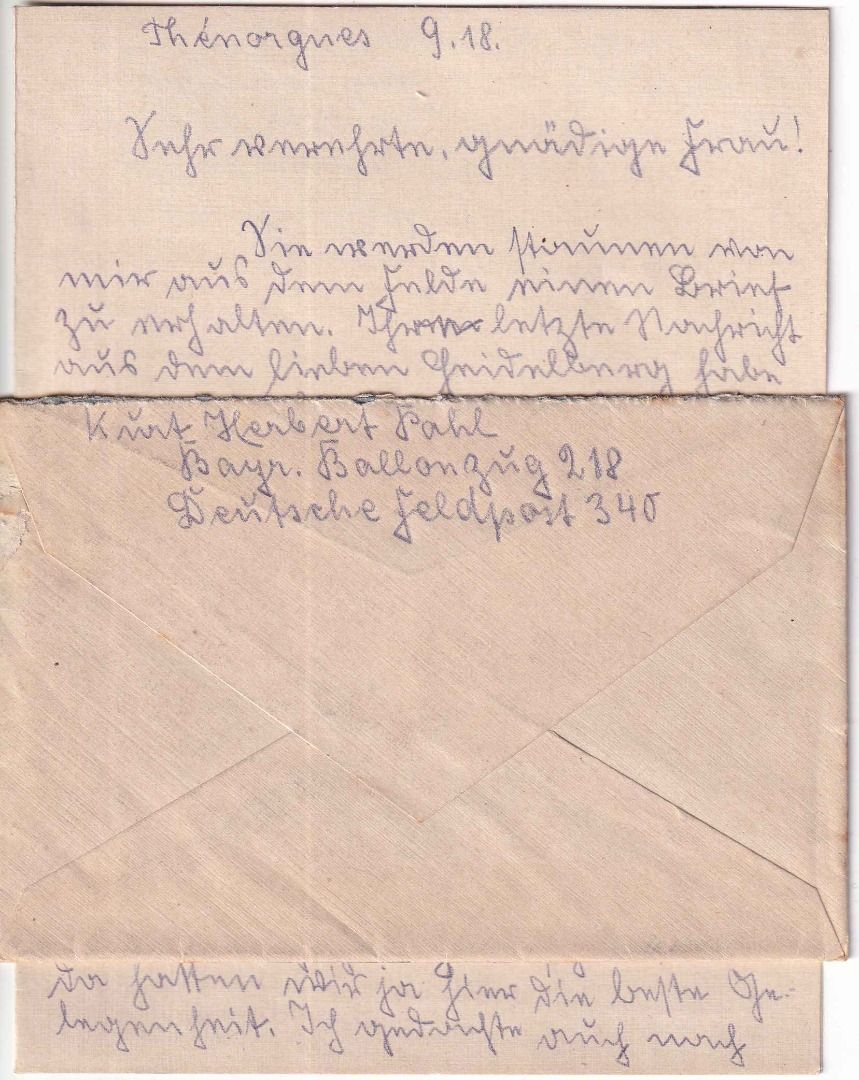 Thénorgues 9.18.
Sehr verehrte, gnädige Frau!
Sie werden staunen von
mir aus dem Felde einen Brief
zu erhalten. Ihre letzte Nachricht
aus dem lieben Heidelberg habe
Kurt Herbert Pahl
Bayr. Ballonzug 218
Deutsche Feldpost 340
da hatten wir ja hier die beste Ge-
legenheit. Ich gedachte auch noch